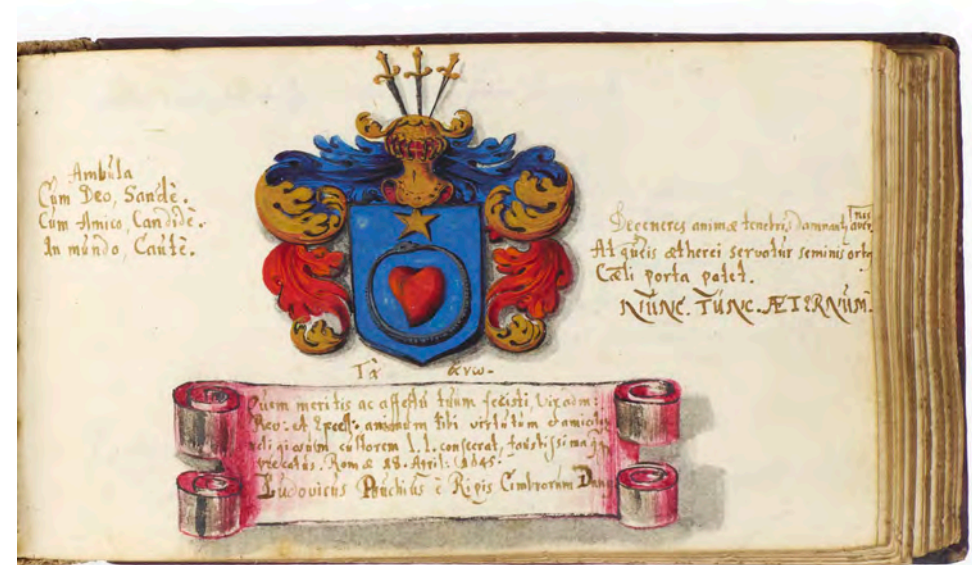 Ambula
Cum Deo, Sanctè.
Cum Amico, Candidè.
In mundo, Cautè.
Degeneres animæ tenebris damnantur
At queis ætherei servatur seminis
Cæli porta patet.
NUNC. TUNC. ÆTERNUM.
Τὰ ἄνω.
Quem meritis ac affectu tuum fecisti,
Rev: et Excell: animum tibi virtutum et
cultorem L. L. consecrat, faustissima
precatus. Romæ 18. April: 1645.
Ludovicus è Ripis Cimbrorum